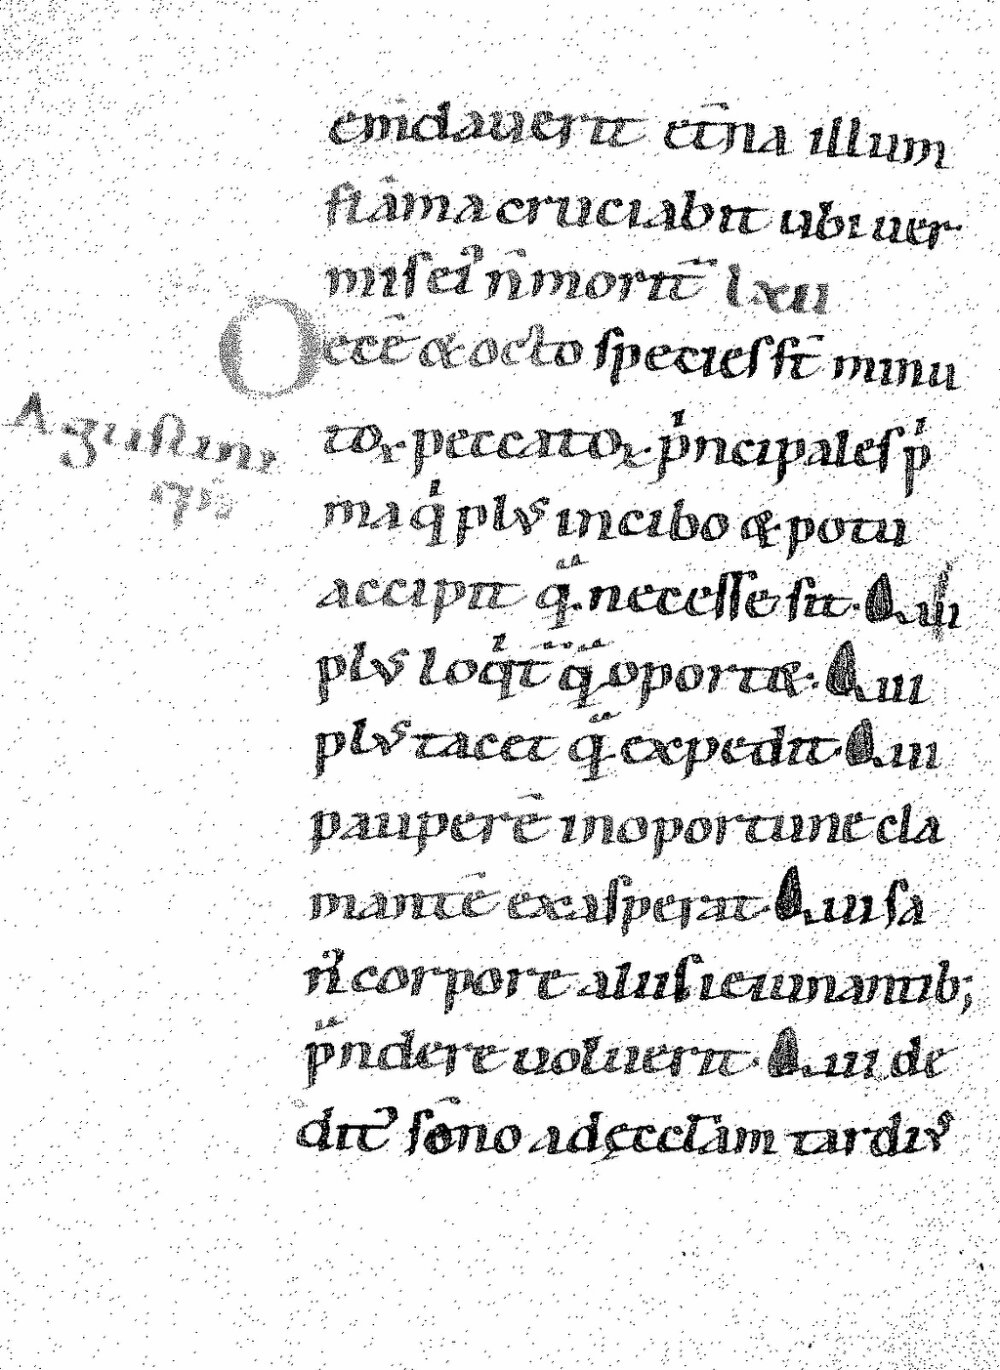 em̅dauerit et̅na illum
fla̅ma cruciabit ubi uer
mis ei' n̅ morit̅ lxii
Dece̅ & octo species st̅ minu
toꝝ peccatoꝝ. pͥncipales pͥ
ma qͥ plus in cibo & potu
Agustini
accipit qͣ. necesse sit. Q. iii
plus loqͥt̅ qͣ oportet. Q. iii
plus tacet qͣ expedit. Q. iii
paupere̅ inoportune cla
mante̅ exasperat. Q. iii sa
n' corpore aliis ieiunantib;
pͣndere uoluerit. Q. iii de
dit' so̅no ad ęccl̅am tardius